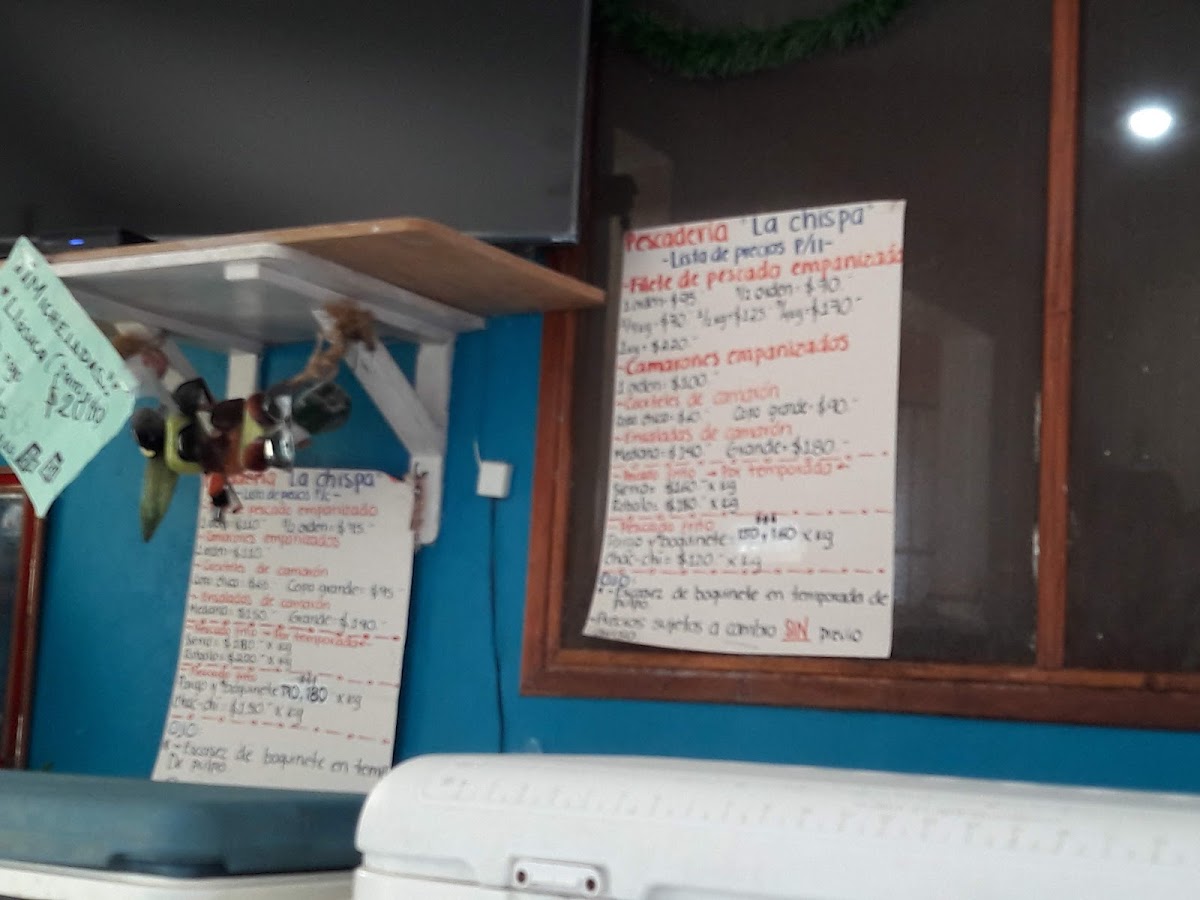 ¡¡MICHELADAS!!
$20.00
Pescaderia "La chispa"
-Lista de precios P/II-
-Filete de pescado empanizado
1 orden- $95.- 1/2 orden= $70.-
1/4 kg= $70.- 1/2 kg= $125.- 3/4 kg= $170.-
1 kg= $220.-
-Camarones empanizados
1 orden= $100.-
-Cocteles de camarón
Copa chica= $60.- Copa grande= $90.-
-Ensaladas de camarón
Mediana= $140.- Grande= $180.-
-Pescado frito -> Por temporada
Sierra= $160.- x kg
Robalo= $180.- x kg
-Pescado frito
Pargo y boquinete= 150, 160 x kg
Chac-chi= $120.- x kg
OJO:
*-Escasez de boquinete en temporada de
pulpo.
-Precios sujetos a cambio SIN previo
"La chispa"
-Lista de precios P/C-
de pescado empanizado
1/2 orden= $75.-
-Camarones empanizados
1 orden= $110.-
-Cocteles de camarón
Copa chica= $65.- Copa grande= $95.-
-Ensaladas de camarón
Mediana= $150.- Grande= $190.-
-Pescado frito -> Por temporada
Sierra= $180.- x kg
Robalo= $200.- x kg
-Pescado frito
Pargo y boquinete 170, 180 x kg
Chac-chi= $130.- x kg
OJO:
*-Escasez de boquinete en temp
De pulpo